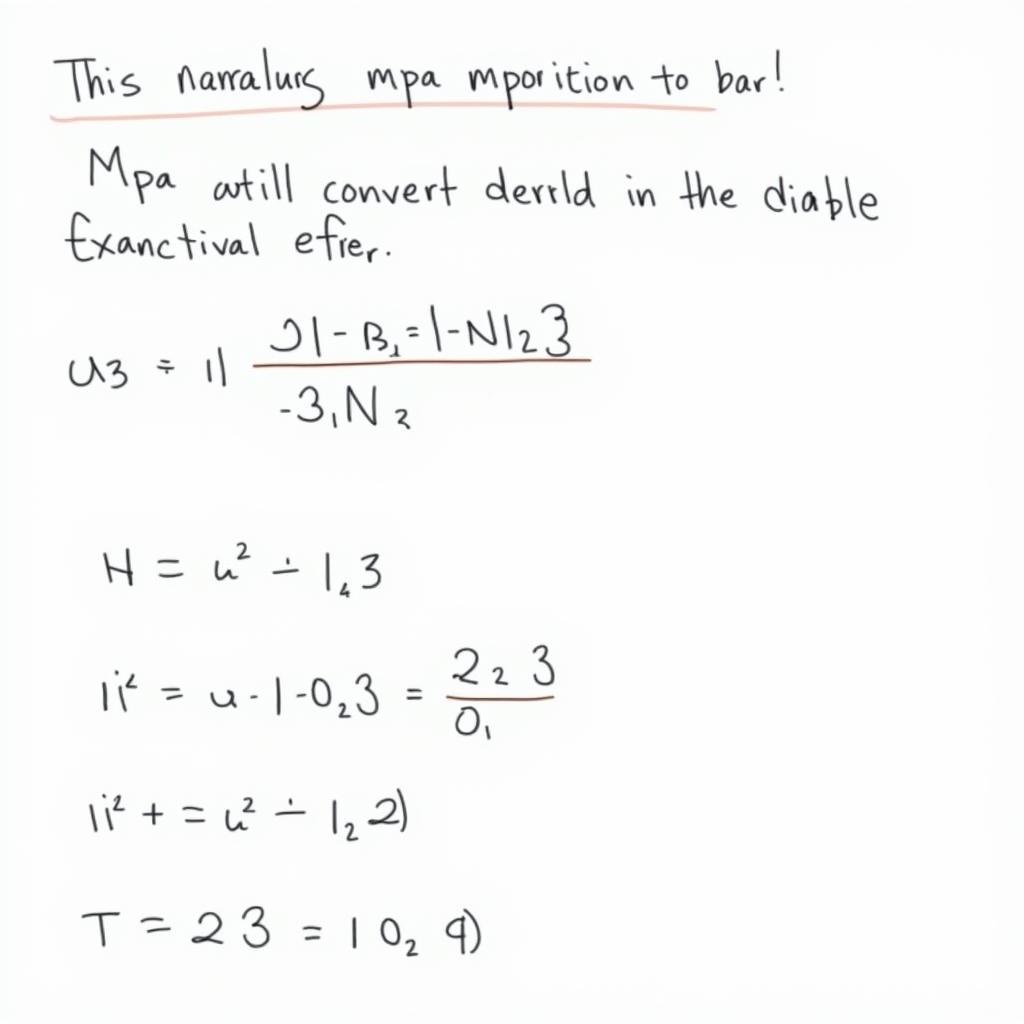 This narralurs mpa mporition to bar!
Mpa atill convert derrld in the diable
Exanctival efrer.
u3 ÷ 11 Ɔ1 - B₁ = 1 - N1₂3
-3₁N ₂
H = u² ∸ 1₄3
1i² = u · 1 - 0₂3 = 2₂ 3
0₁
1i² + = u² ∸ 1₂ 2)
T = 2 3 = 1 0₂ 9)